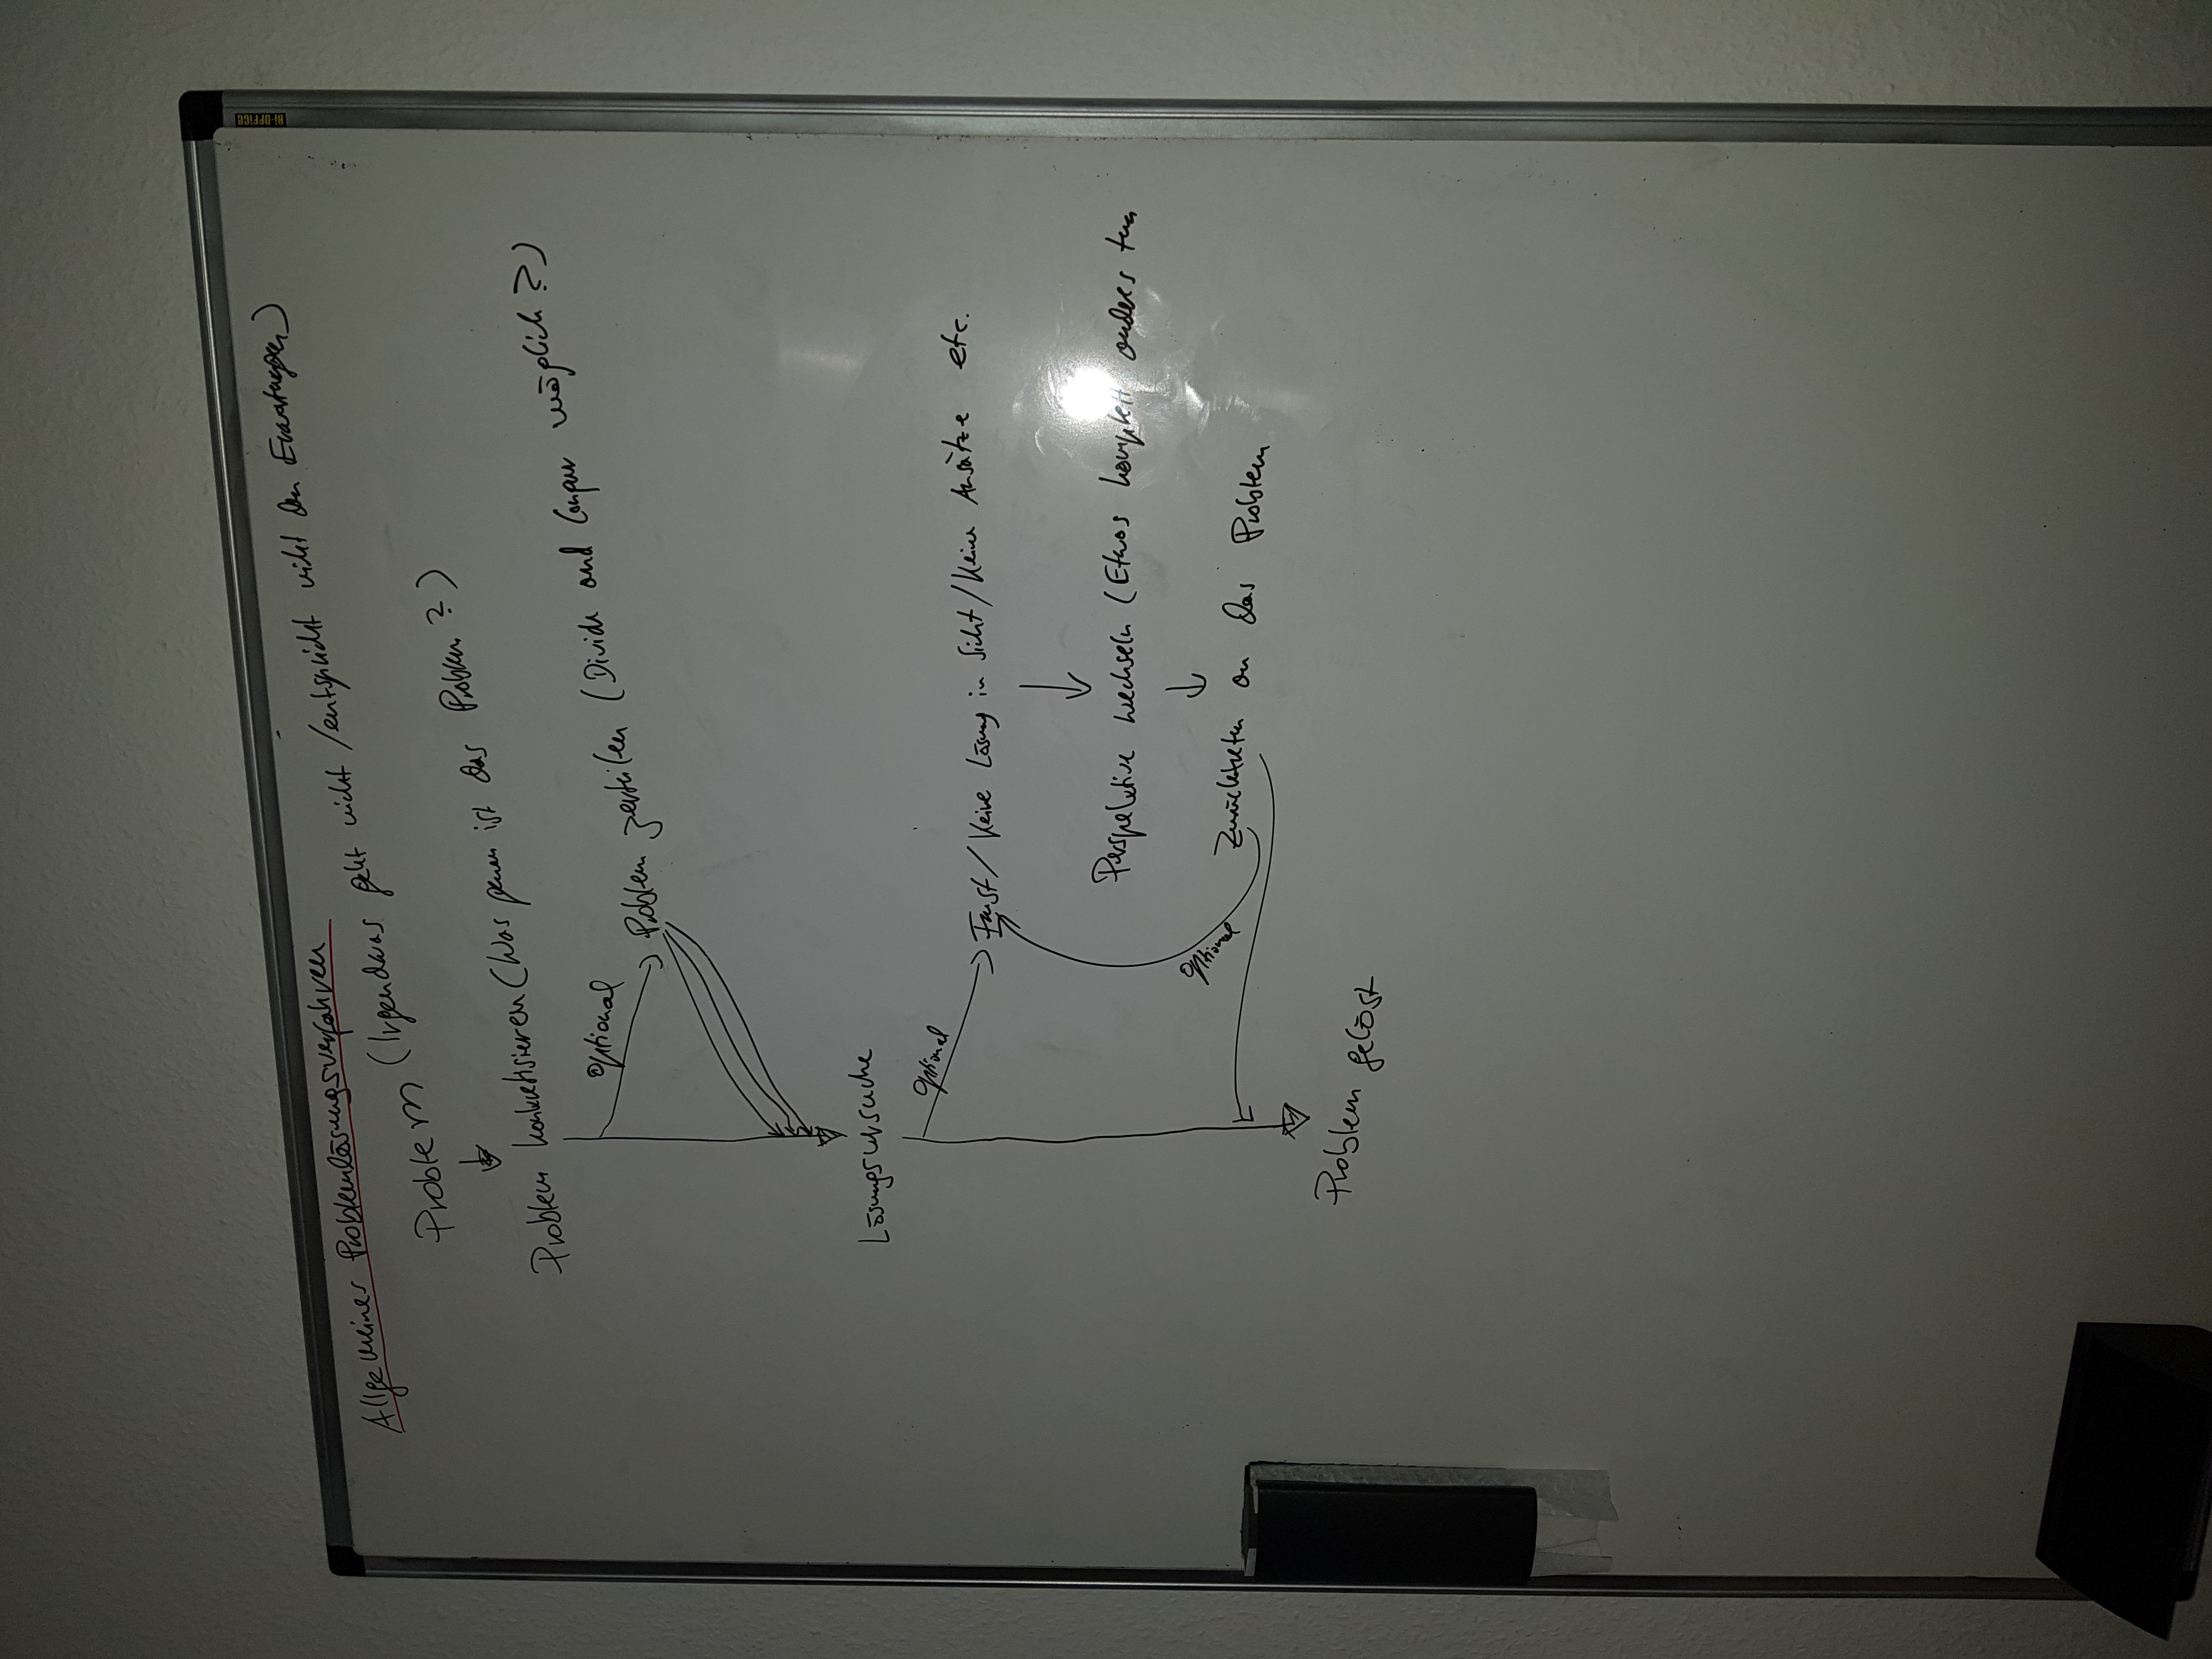 BI-OFFICE
Allgemeines Problemlösungsverfahren
Problem (Irgendwas geht nicht /entspricht nicht den Erwartungen)
Problem konkretisieren (Was genau ist das Problem?)
Optional
Problem zerteilen (Divide and Conquer möglich?)
Lösungsversuche
Optional
Frust / Keine Lösung in Sicht / Keine Ansätze etc.
Perspektive wechseln (Etwas komplett anders tun
Optional
Zurücktreten an das Problem
Problem gelöst